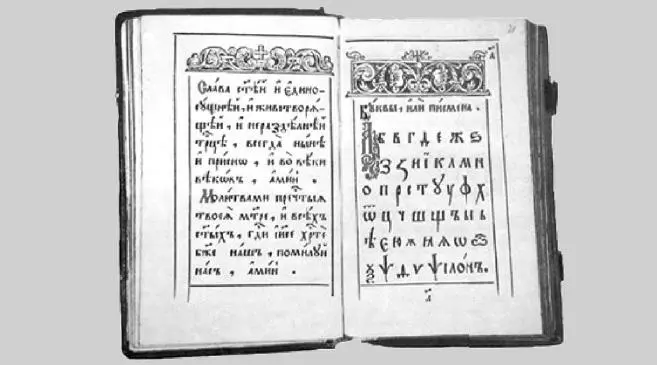 Сла́ва ст҃ѣ́й и҆ є҆ди́но-
сꙋ́щнѣй, и҆ животворѧ́-
щѣй, и҆ нераздѣ́лнѣй
трⷪ҇цѣ, всегда̀ ны́нѣ
и҆ при́снѡ, и҆ во вѣ́ки
вѣкѡ́въ, а҆ми́нь.
Моли́твами пречⷭ҇тыѧ
твоеѧ̀ мт҃ре, и҆ всѣ́хъ
ст҃ы́хъ, гдⷭ҇и і҆и҃се хрⷭ҇тѐ
бж҃е на́шъ, поми́лꙋй
на́съ, а҆ми́нь.
Бꙋ́квы, и҆лѝ писмена̀.
А Б В Г Д Е Ж Ѕ
З И І К Л М Н
О П Р С Т Ꙋ У Ф Х
Ѿ Ц Ч Ш Щ Ъ Ы Ь
Ѣ Є Ю Ѫ Ѧ Ѡ
Ѯ Ѱ Ѵ ѵ҆ѱїло́нъ.